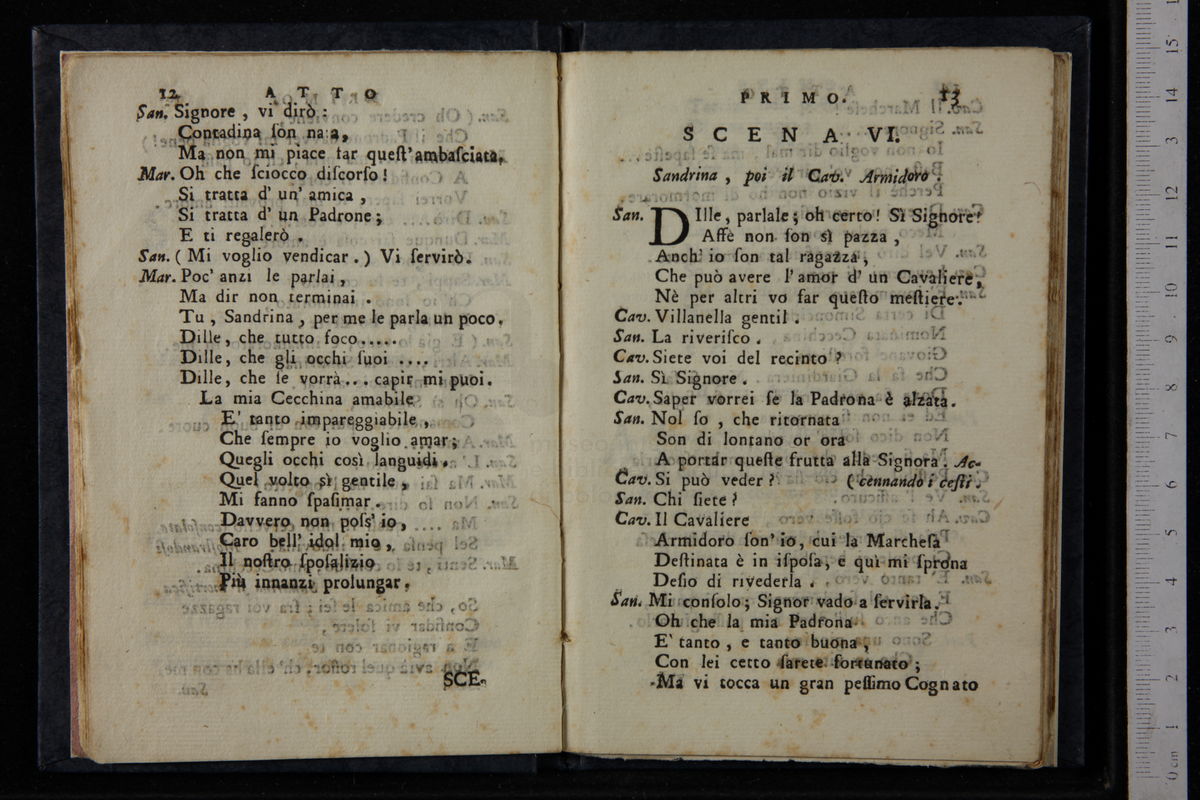 12 A T T O
San. Signore, vi dirò:
Contadina ſon na a,
Ma non mi piace far queſt' ambaſciata.
Mar. Oh che ſciocco diſcorſo!
Si tratta d' un' amica,
Si tratta d' un Padrone;
E ti regalerò.
San. (Mi voglio vendicar.) Vi ſervirò.
Mar. Poc' anzi le parlai,
Ma dir non terminai.
Tu, Sandrina, per me le parla un poco.
Dille, che tutto foco.....
Dille, che gli occhi ſuoi ....
Dille, che ſe vorrà... capir mi puoi.
La mia Cecchina amabile
E' tanto impareggiabile,
Che ſempre io voglio amar;
Quegli occhi così languidi,
Quel volto sì gentile,
Mi fanno ſpaſimar.
Davvero non poſs' io,
Caro bell' idol mio,
Il noſtro ſpoſalizio
Più innanzi prolungar.
SCE-
PRIMO. 13
SCENA VI.
Sandrina, poi il Cav. Armidoro.
San. DIlle, parlale; oh certo! Sì Signore!
Affè non ſon sì pazza,
Anch' io ſon tal ragazza,
Che può avere l' amor d' un Cavaliere,
Nè per altri vo far queſto meſtiere.
Cav. Villanella gentil.
San. La riveriſco.
Cav. Siete voi del recinto?
San. Sì Signore.
Cav. Saper vorrei ſe la Padrona è alzata.
San. Nol ſo, che ritornata
Son di lontano or ora
A portar queſte frutta alla Signora. Ac-
Cav. Si può veder? (cennando i ceſti.
San. Chi ſiete?
Cav. Il Cavaliere
Armidoro ſon' io, cui la Marcheſa
Deſtinata è in iſpoſa, e quì mi ſprona
Deſio di rivederla.
San. Mi conſolo; Signor vado a ſervirla.
Oh che la mia Padrona
E' tanto, e tanto buona,
Con lei cetto ſarete fortunato;
Ma vi tocca un gran peſſimo Cognato